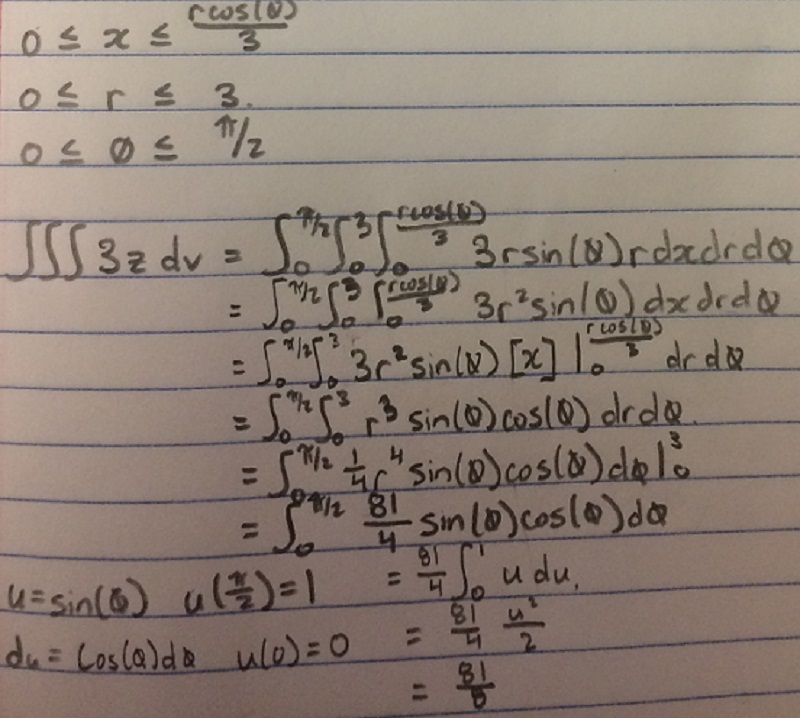 0 ≤ x ≤ rcos(θ)/3
0 ≤ r ≤ 3.
0 ≤ θ ≤ π/2
∭ 3z dv = ∫₀^{π/2} ∫₀^3 ∫₀^{rcos(θ)/3} 3rsin(θ) r dx dr dθ
= ∫₀^{π/2} ∫₀^3 ∫₀^{rcos(θ)/3} 3r² sin(θ) dx dr dθ
= ∫₀^{π/2} ∫₀^3 3r² sin(θ) [x] |₀^{rcos(θ)/3} dr dθ
= ∫₀^{π/2} ∫₀^3 r³ sin(θ) cos(θ) dr dθ.
= ∫₀^{π/2} 1/4 r⁴ sin(θ) cos(θ) dθ |₀^3
= ∫₀^{π/2} 81/4 sin(θ) cos(θ) dθ
u = sin(θ) u(π/2) = 1 = 81/4 ∫₀^1 u du.
du = cos(θ) dθ u(0) = 0 = 81/4 u²/2
= 81/8